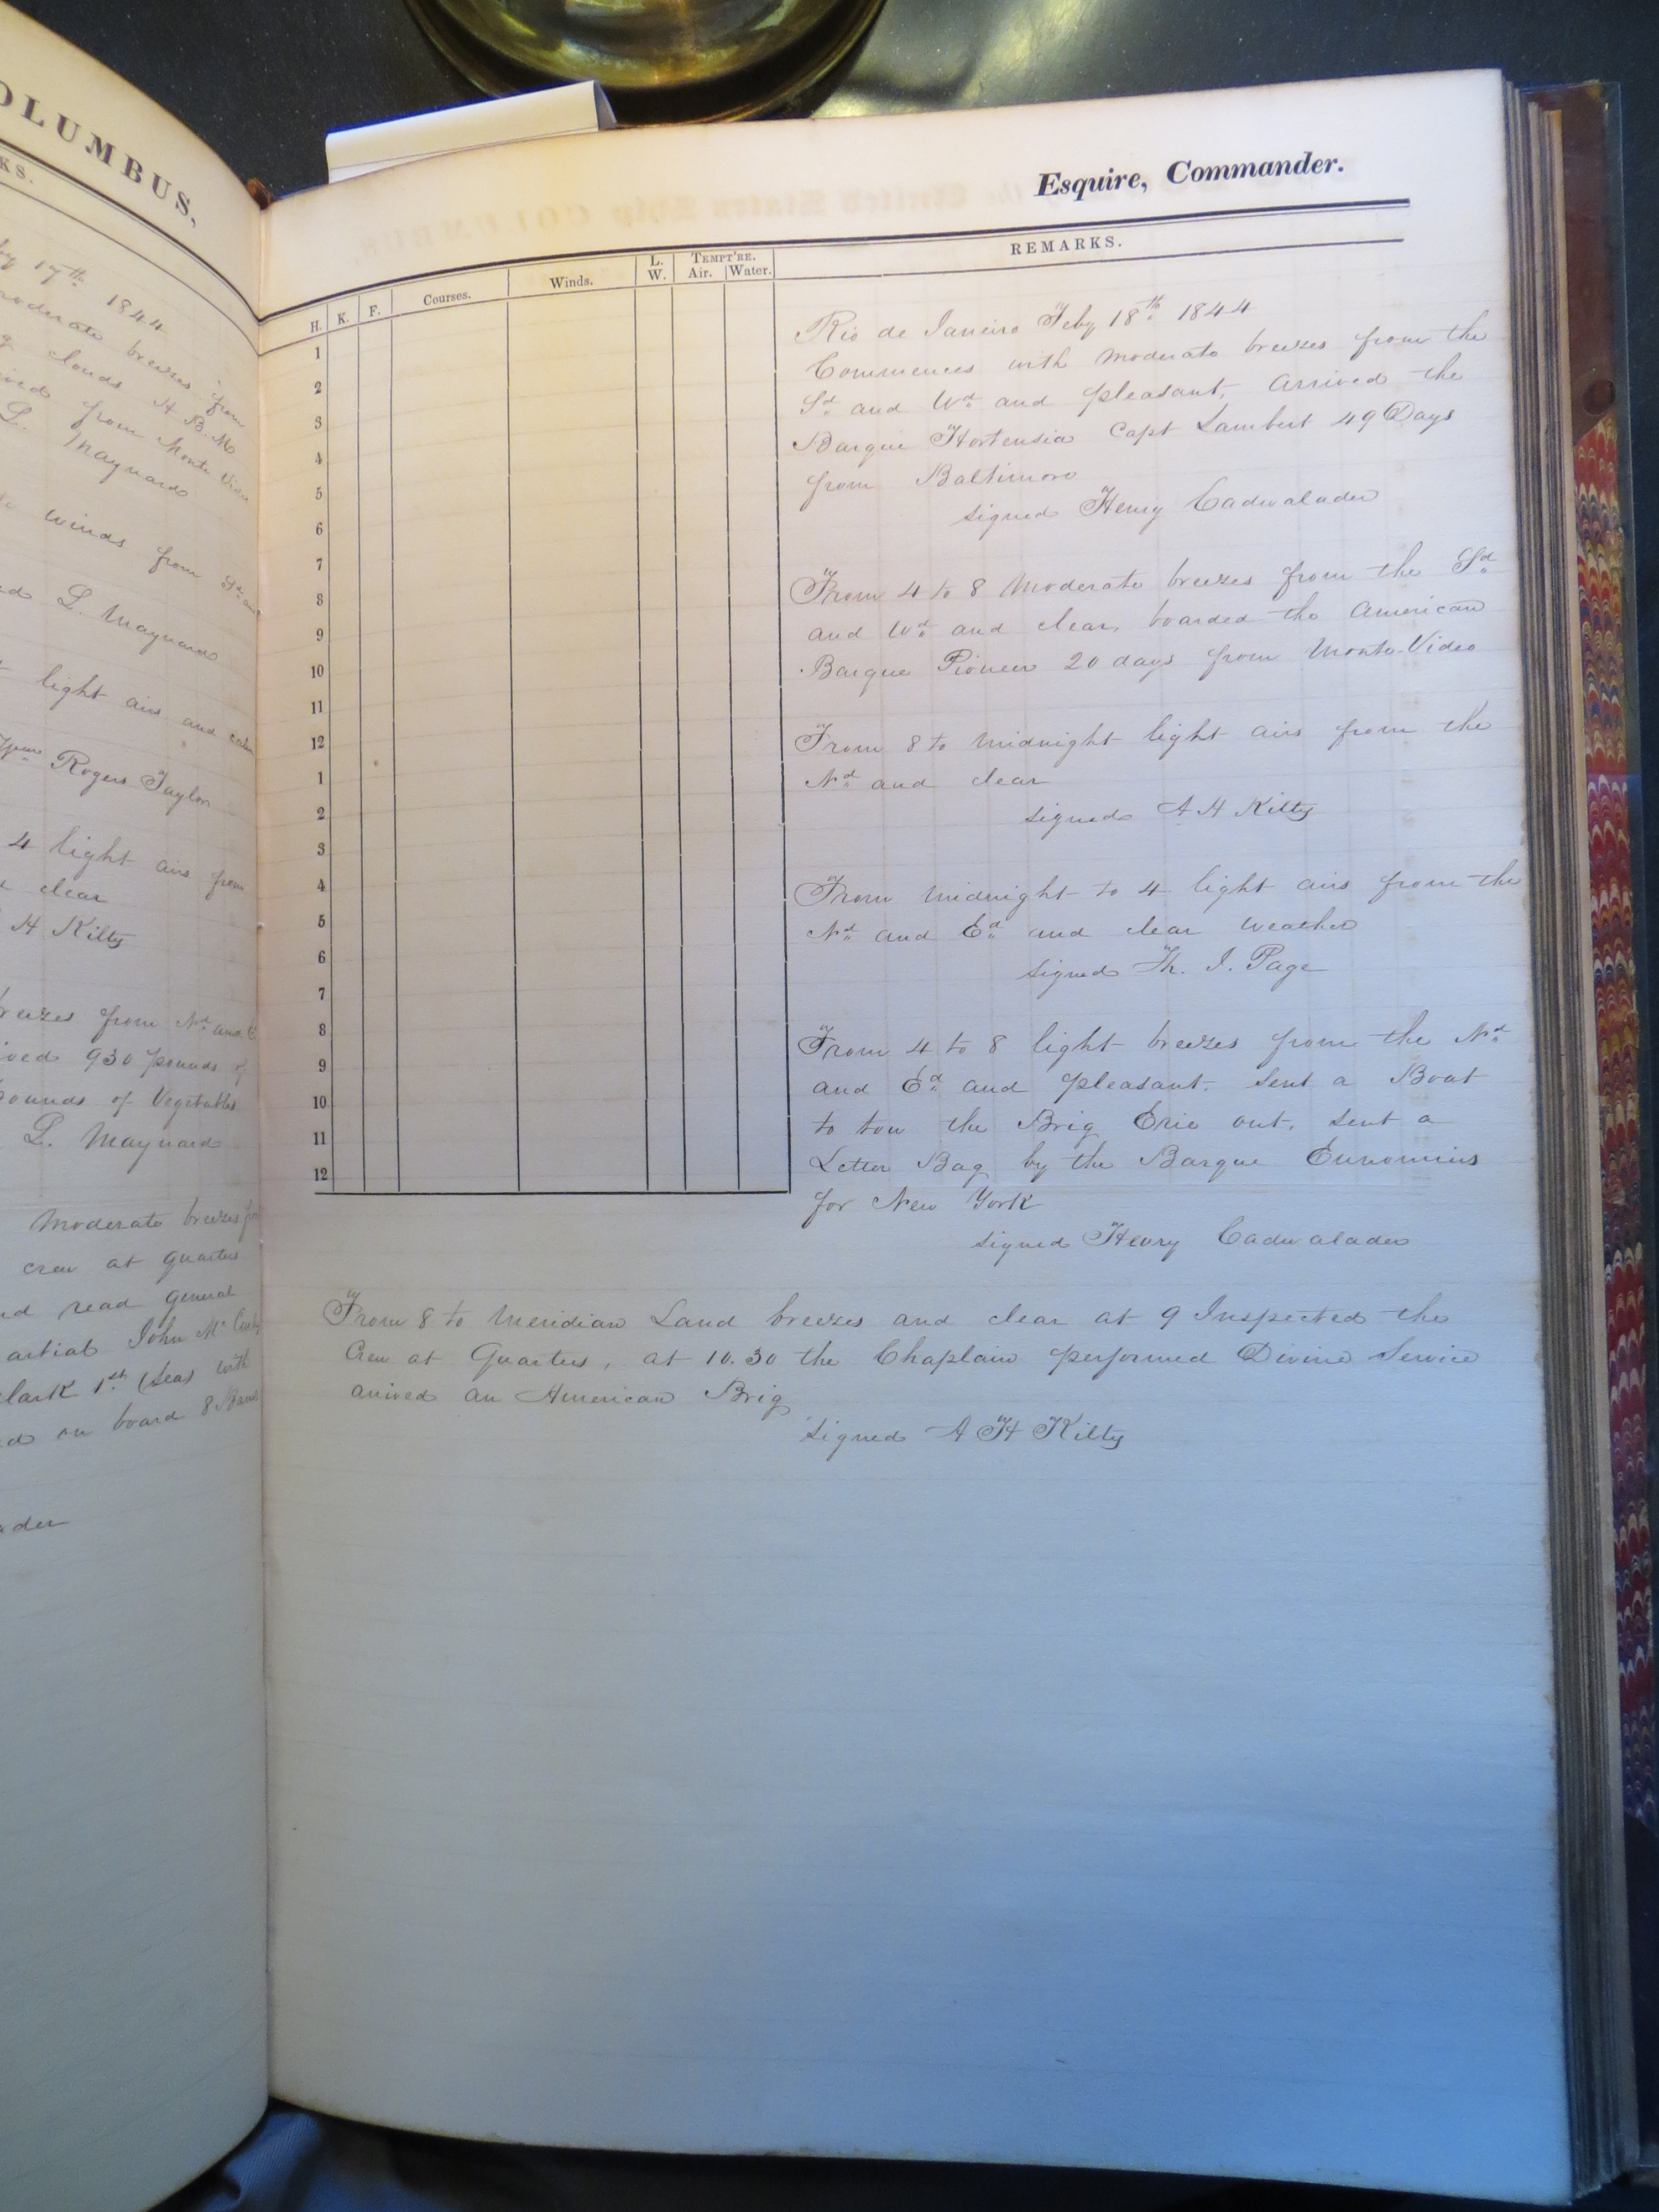 OLUMBUS,
KS.
17th 1844
moderate breezes from
clouds H. B. M
from Monte Vide
L. Maynard
winds from Sd and
L. Maynard
light airs and calm
Rogers Taylor
4 light airs from
clear
H Kilty
breezes from Nd and E
930 pounds of
pounds of Vegetables
L. Maynard
Moderate breezes from
crew at quarters
read general
John Mc
1st (Sea) with
on board 8
Esquire, Commander.
H. K. F. Courses. Winds. L. W. TEMPT'RE. Air. Water. REMARKS.
1
2
3
4
5
6
7
8
9
10
11
12
1
2
3
4
5
6
7
8
9
10
11
12
Rio de Janeiro Feby 18th 1844
Commences with moderate breezes from the
Sd and Wd and pleasant, Arrived the
Barque Hortensia Capt Lambert 49 Days
from Baltimore
signed Henry Cadwalader
From 4 to 8 Moderate breezes from the Sd
and Wd and clear, boarded the American
Barque Pioneer 20 days from Monte-Video
From 8 to midnight light airs from the
Nd and clear
signed A H Kilty
From midnight to 4 light airs from the
Nd and Ed and clear weather
signed Th. J. Page
From 4 to 8 light breezes from the Nd
and Ed and pleasant. Sent a Boat
to tow the Brig Erie out, sent a
Letter Bag by the Barque Eunomius
for New York
signed Henry Cadwalader
From 8 to Meridian Land breezes and clear at 9 Inspected the
Crew at Quarters, at 10.30 the Chaplain performed Divine Service
arrived an American Brig
signed A H Kilty